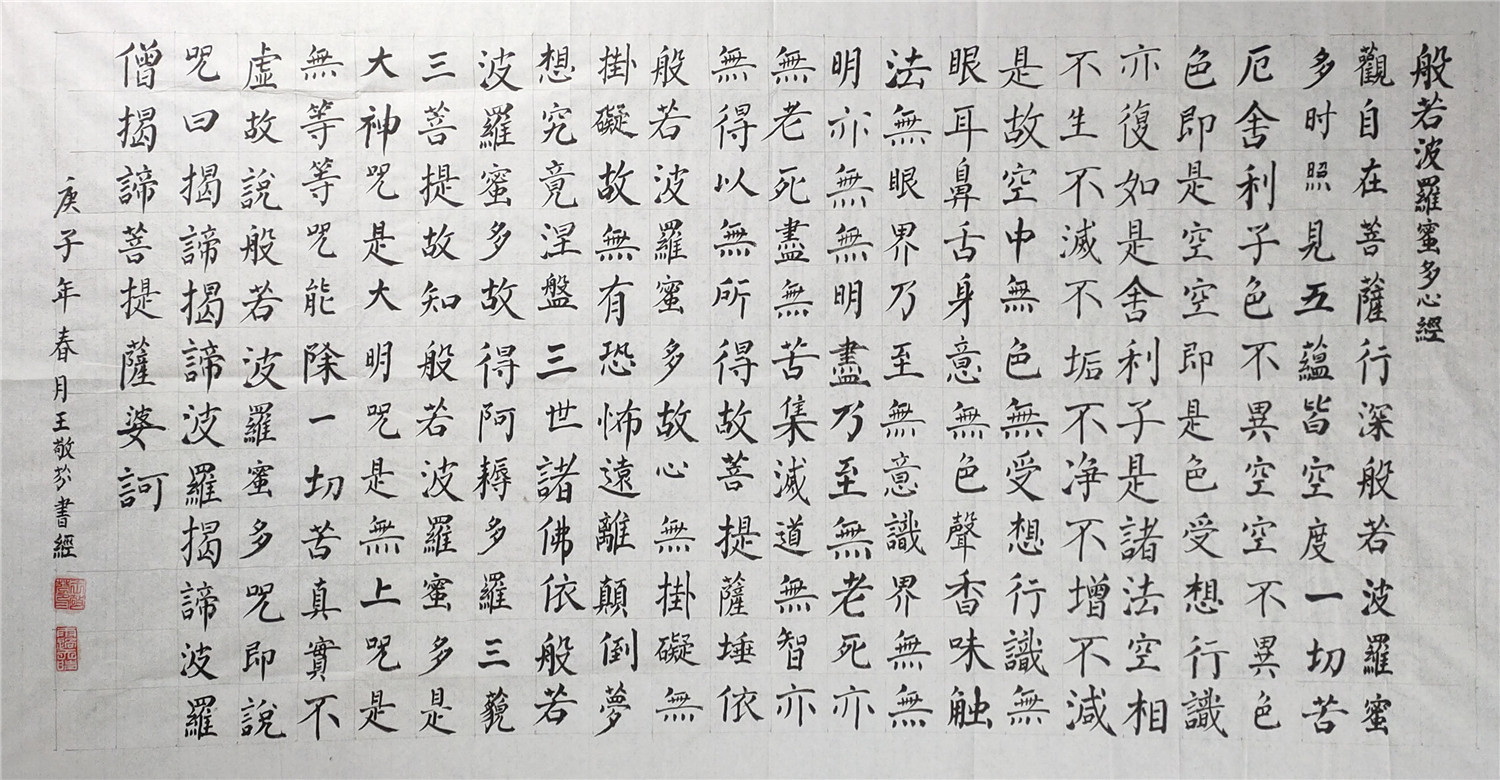 般若波羅蜜多心經
觀自在菩薩行深般若波羅蜜
多时照見五蘊皆空度一切苦
厄舍利子色不異空空不異色
色即是空空即是色受想行識
亦復如是舍利子是諸法空相
不生不滅不垢不净不增不減
是故空中無色無受想行識無
眼耳鼻舌身意無色聲香味触
法無眼界乃至無意識界無無
明亦無無明盡乃至無老死亦
無老死盡無苦集滅道無智亦
無得以無所得故菩提薩埵依
般若波羅蜜多故心無掛礙無
掛礙故無有恐怖遠離顛倒夢
想究竟涅盤三世諸佛依般若
波羅蜜多故得阿耨多羅三藐
三菩提故知般若波羅蜜多是
大神呪是大明呪是無上呪是
無等等呪能除一切苦真實不
虛故說般若波羅蜜多呪即說
呪曰揭諦揭諦波羅揭諦波羅
僧揭諦菩提薩婆訶
庚子年春月王敬芬書經